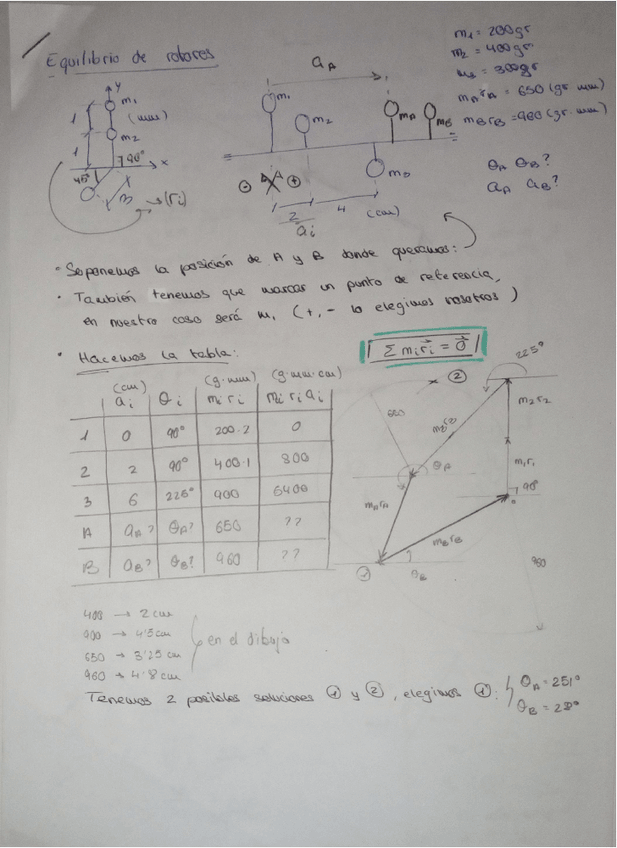 Equilibrio de rotores
m₁ = 200gr
m₂ = 400gr
m₃ = 300gr
m_A r_A = 650 (gr mm)
m_B r_B = 960 (gr. mm)
θ_A θ_B?
a_A a_B?
y
m₁
1
(mm)
m₂
1
90°
x
45°
3
(r_i)
a_A
m₁
m₂
m_A
m_B
m₃
⊖ ⊕
2
4
(cm)
a_i
• Suponemos la posición de A y B donde queramos:
• También tenemos que marcar un punto de referencia,
en nuestro caso será m₁ (+, - lo elegimos nosotros)
• Hacemos la tabla:
Σ m_i r_i = 0
(cm) (g·mm) (g·mm·cm)
a_i θ_i m_i r_i m_i r_i a_i
1 0 90° 200·2 0
2 2 90° 400·1 800
3 6 225° 900 5400
A a_A? θ_A? 650 ??
B a_B? θ_B? 960 ??
225°
②
650
m₃r₃
m₂r₂
θ_A
m₁r₁
m_A r_A
90°
m_B r_B
①
θ_B
960
400 → 2 cm
900 → 4'5 cm
650 → 3'25 cm
960 → 4'8 cm
en el dibujo
Tenemos 2 posibles soluciones ① y ②, elegimos ①:
θ_A = 251°
θ_B = 28°